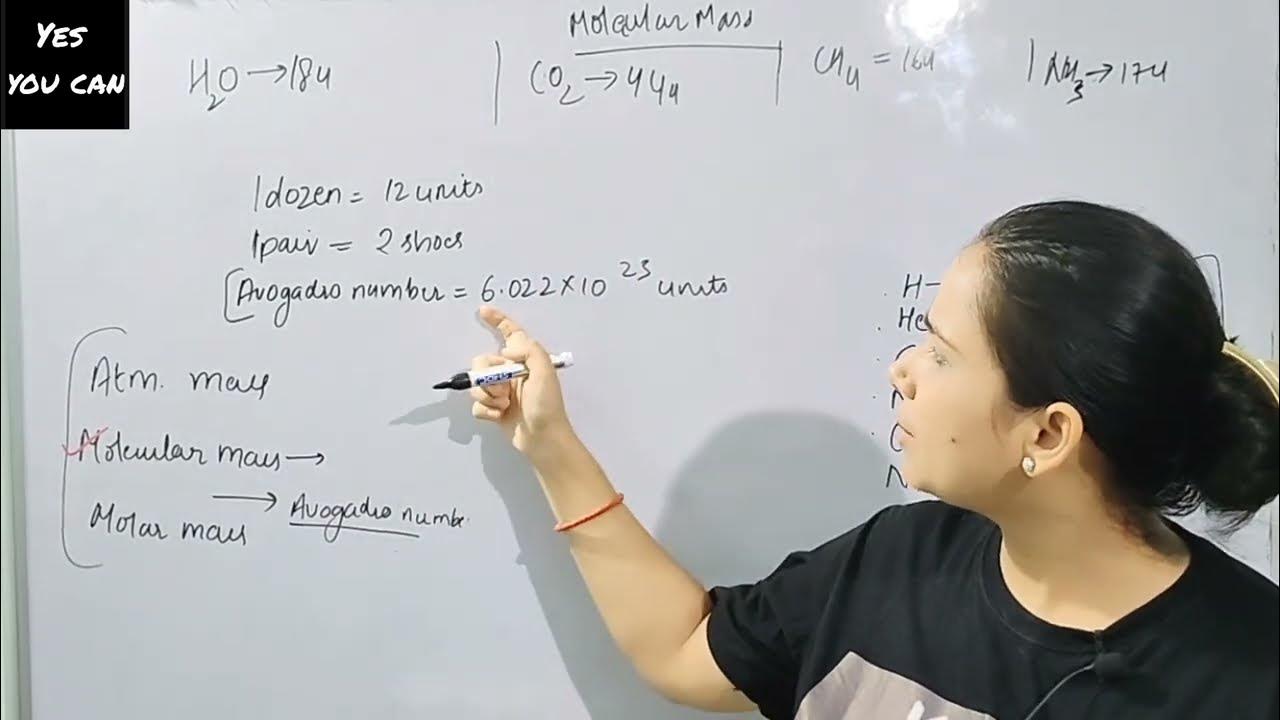 Yes
you can
Molecular Mass
H2O → 18u | CO2 → 44u | CH4 = 16u | NH3 → 17u
1 dozen = 12 units
1 pair = 2 shoes
[Avogadro number = 6.022 × 10^23 units
H-
He
Atm. mass
Molecular mass →
Molar mass → Avogadro numbe.